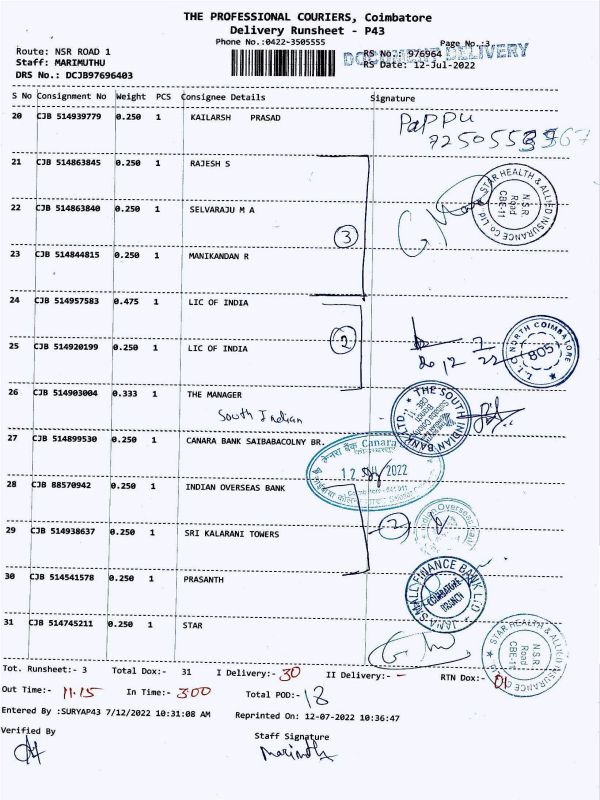 THE PROFESSIONAL COURIERS, Coimbatore
Delivery Runsheet - P43
Phone No.:0422-3505555
Page No.:3
Route: NSR ROAD 1
RS No.: 976964
DOCUMENT DELIVERY
Staff: MARIMUTHU
RS Date: 12-Jul-2022
DRS No.: DCJB97696403
S No Consignment No Weight PCS Consignee Details Signature
20 CJB 514939779 0.250 1 KAILARSH PRASAD
PaPPU
21 CJB 514863845 0.250 1 RAJESH S
STAR HEALTH & ALLIED INSURANCE CO LTD
NSR
Road
CBE-11
22 CJB 514863840 0.250 1 SELVARAJU M A
3
23 CJB 514844815 0.250 1 MANIKANDAN R
24 CJB 514957583 0.475 1 LIC OF INDIA
2
25 CJB 514920199 0.250 1 LIC OF INDIA
L.I.C NORTH COIMBATORE
805
26 CJB 514903004 0.333 1 THE MANAGER
South Indian
THE SOUTH INDIAN BANK LTD.
27 CJB 514899530 0.250 1 CANARA BANK SAIBABACOLNY BR.
केनरा बैंक Canara
12 2022
28 CJB 88570942 0.250 1 INDIAN OVERSEAS BANK
2
Indian Overseas
29 CJB 514938637 0.250 1 SRI KALARANI TOWERS
30 CJB 514541578 0.250 1 PRASANTH
JANA SMALL FINANCE BANK LTD
COIMBATORE
BRANCH
31 CJB 514745211 0.250 1 STAR
STAR HEALTH & ALLIED
NSR
Road
CBE-11
Tot. Runsheet:- 3 Total Dox:- 31 I Delivery:- 30 II Delivery:- - RTN Dox:- 01
Out Time:- 11.15 In Time:- 300 Total POD:- 18
Entered By :SURYAP43 7/12/2022 10:31:08 AM Reprinted On: 12-07-2022 10:36:47
Verified By
Staff Signature